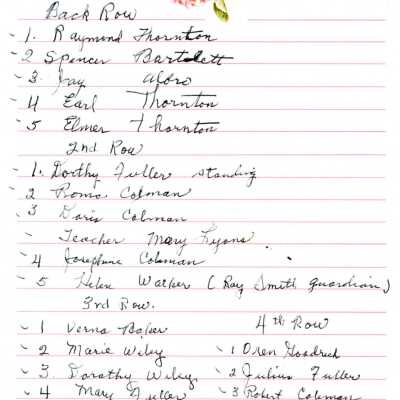 Back Row
1. Raymond Thornton
2 Spencer Bartlett
3. Jay
4 Earl Thornton
5 Elmer Thornton
2nd Row
1. Dorthy Fuller standing
2 Roma Colman
3 Doris Colman
Teacher Mary Lyons.
4 Josephine Coloman
5 Helen Walker (Ray Smith guardian)
3rd Row.
4th Row
1 Verna Baker
1 Oren Goodrich
2 Marie Wiley
2 Julius Fuller
3. Dorathy Wiley
3 Robert Coleman
4 Mary Fuller